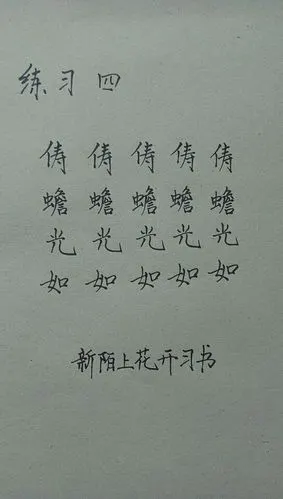 练习四
俦俦俦俦俦
蟾蟾蟾蟾蟾
光光光光光
如如如如如
新陌上花开习书